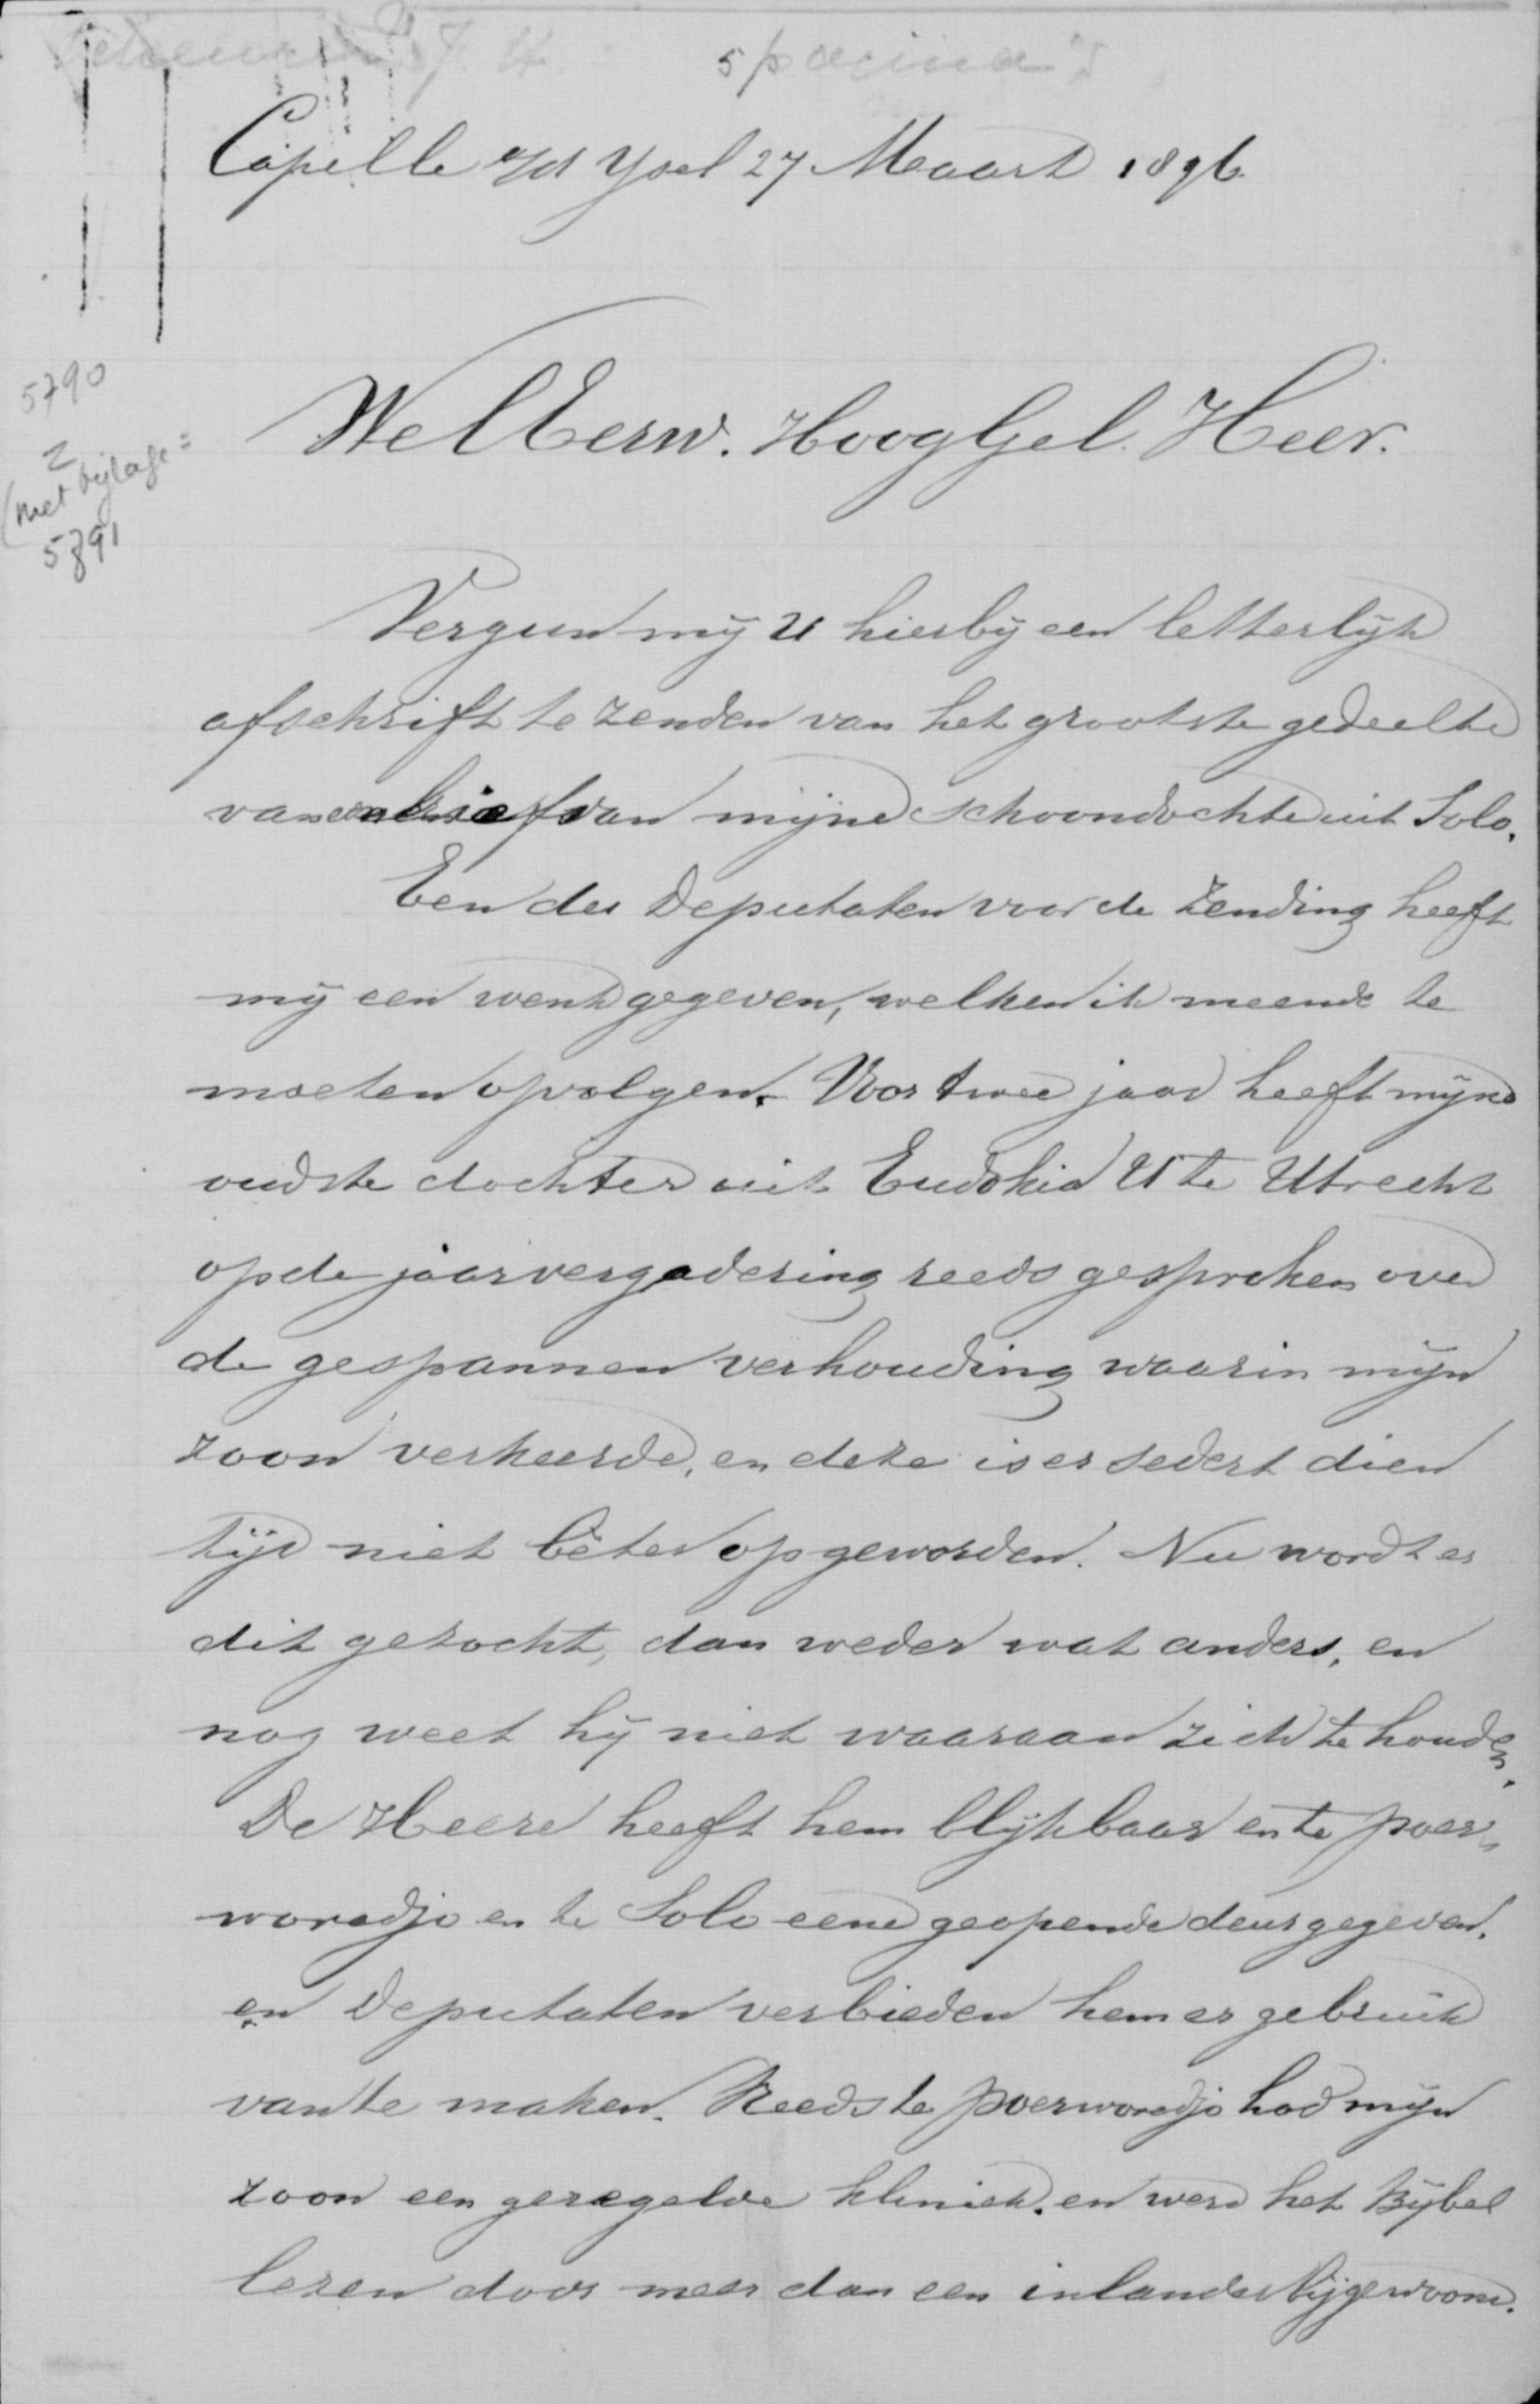 5 pagina's
Capelle a/d Ysel 27 Maart 1896.
5790
2
(met bijlage =
5791
WelEerw. HoogGel. Heer.
Vergun mij U hierbij een letterlijk
afschrift te zenden van het grootste gedeelte
van een brief van mijne schoondochter uit Solo.
Een der Deputaten voor de Zending heeft
mij een wenk gegeven, welken ik meende te
moeten opvolgen. Voor twee jaar heeft mijne
oudste dochter uit Eudokia U te Utrecht
op de jaarvergadering reeds gesproken over
de gespannen verhouding waarin mijn
zoon verkeerde, en deze is er sedert dien
tijd niet beter op geworden. Nu wordt er
dit gezocht, dan weder wat anders, en
nog weet hij niet waaraan zich te houden.
De Heere heeft hem blijkbaar en te poer„
woredjo en te Solo eene geopende deur gegeven,
en Deputaten verbieden hem er gebruik
van te maken. Reeds te poerworedjo had mijn
zoon een geregelde kliniek, en werd het Bijbel
lezen door meer dan een inlander bijgewoond.